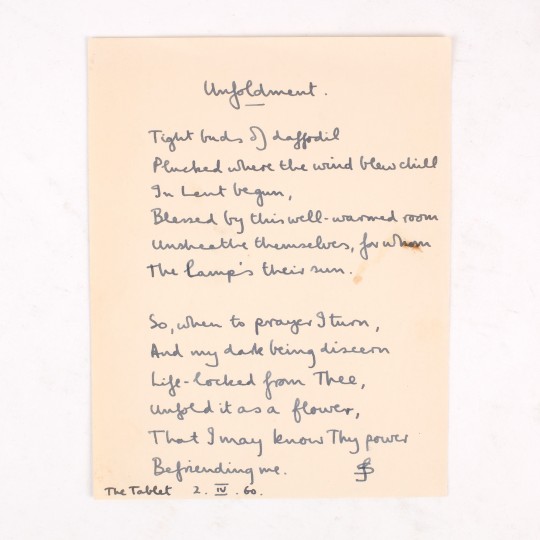 Unfoldment.
Tight buds of daffodil
Plucked where the wind blew chill
In Lent begun,
Blessed by this well-warmed room
Unsheathe themselves, for whom
The lamp's their sun.
So, when to prayer I turn,
And my dark being discern
Life-locked from Thee,
Unfold it as a flower,
That I may know Thy power
Befriending me.
The Tablet 2. IV. 60.